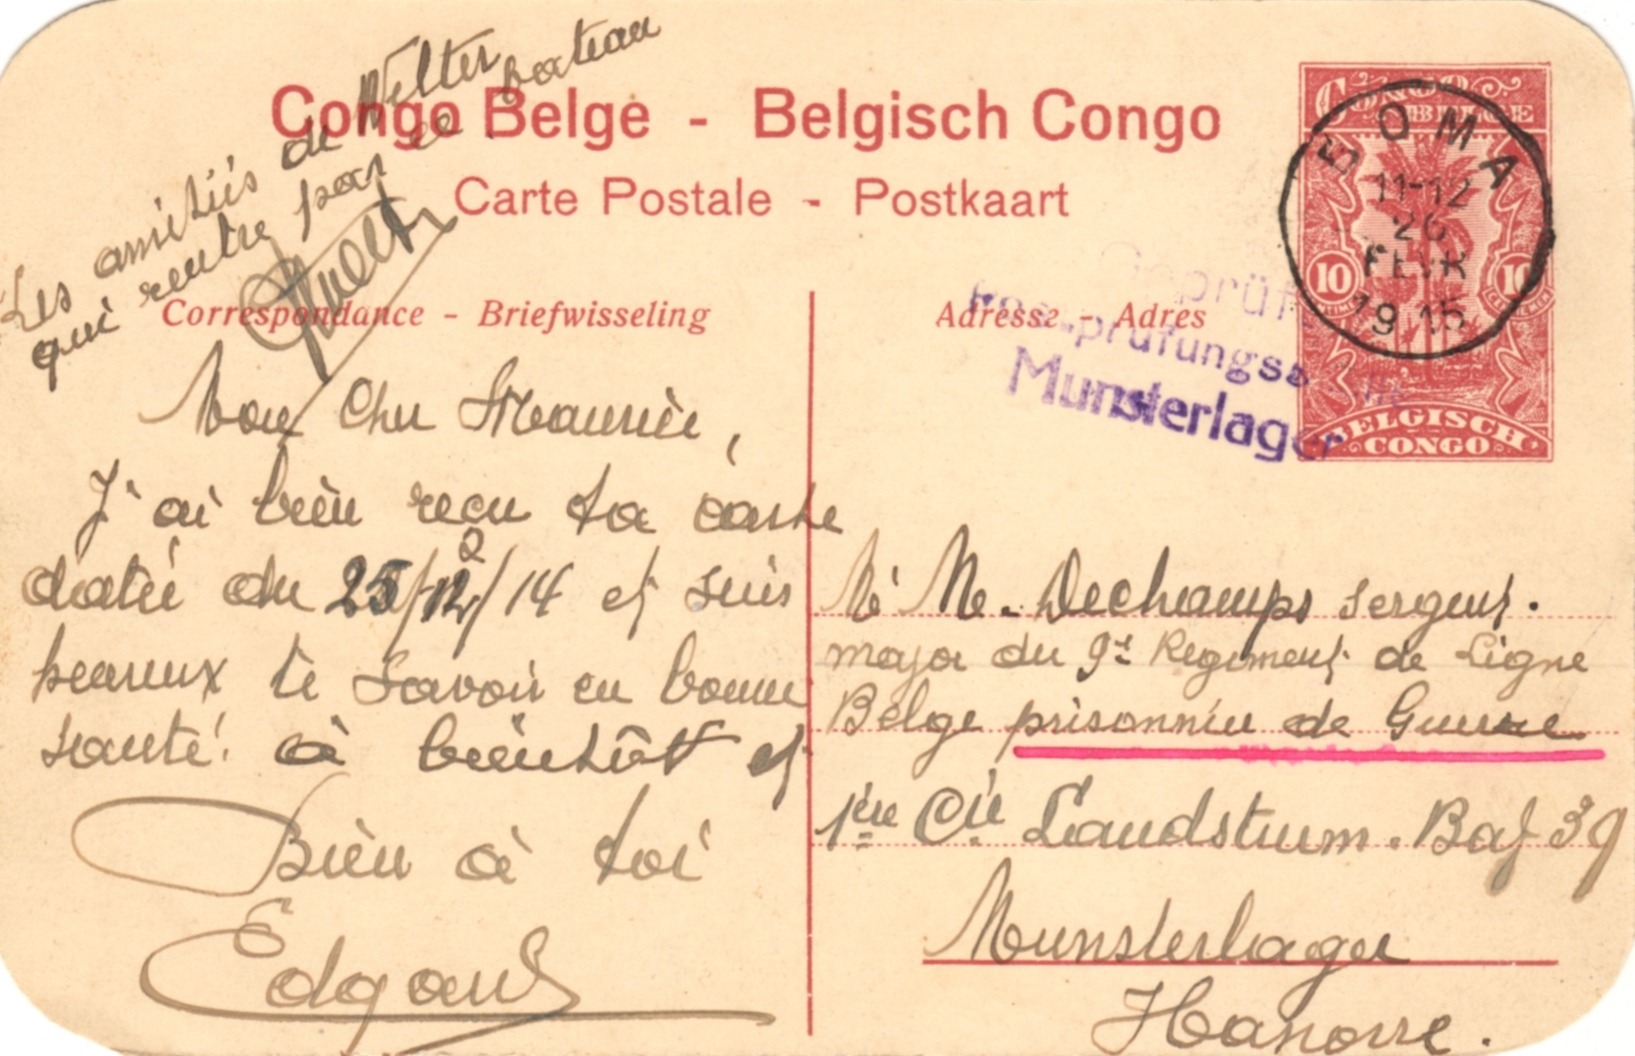 Les amitiés de Welter
qui rentre par ce bateau
Congo Belge - Belgisch Congo
Carte Postale - Postkaart
CONGO BELGE
BOMA
11-12
26
FEVR
1915
10 10
BELGISCH
CONGO
Correspondance - Briefwisseling
Adresse - Adres
Geprüft
Post-prüfungsstelle
Munsterlager
Mon Cher Maurice,
J'ai bien reçu ta carte
datée du 25/12/14 et suis
heureux te savoir en bonne
santé! à bientôt et
Bien à toi
Edgard
Mr M. Dechamps sergent.
major du 9e Regiment de Ligne
Belge prisonnier de Guerre
1ère Cie Landsturm. Bat 39
Munsterlager
Hanovre.